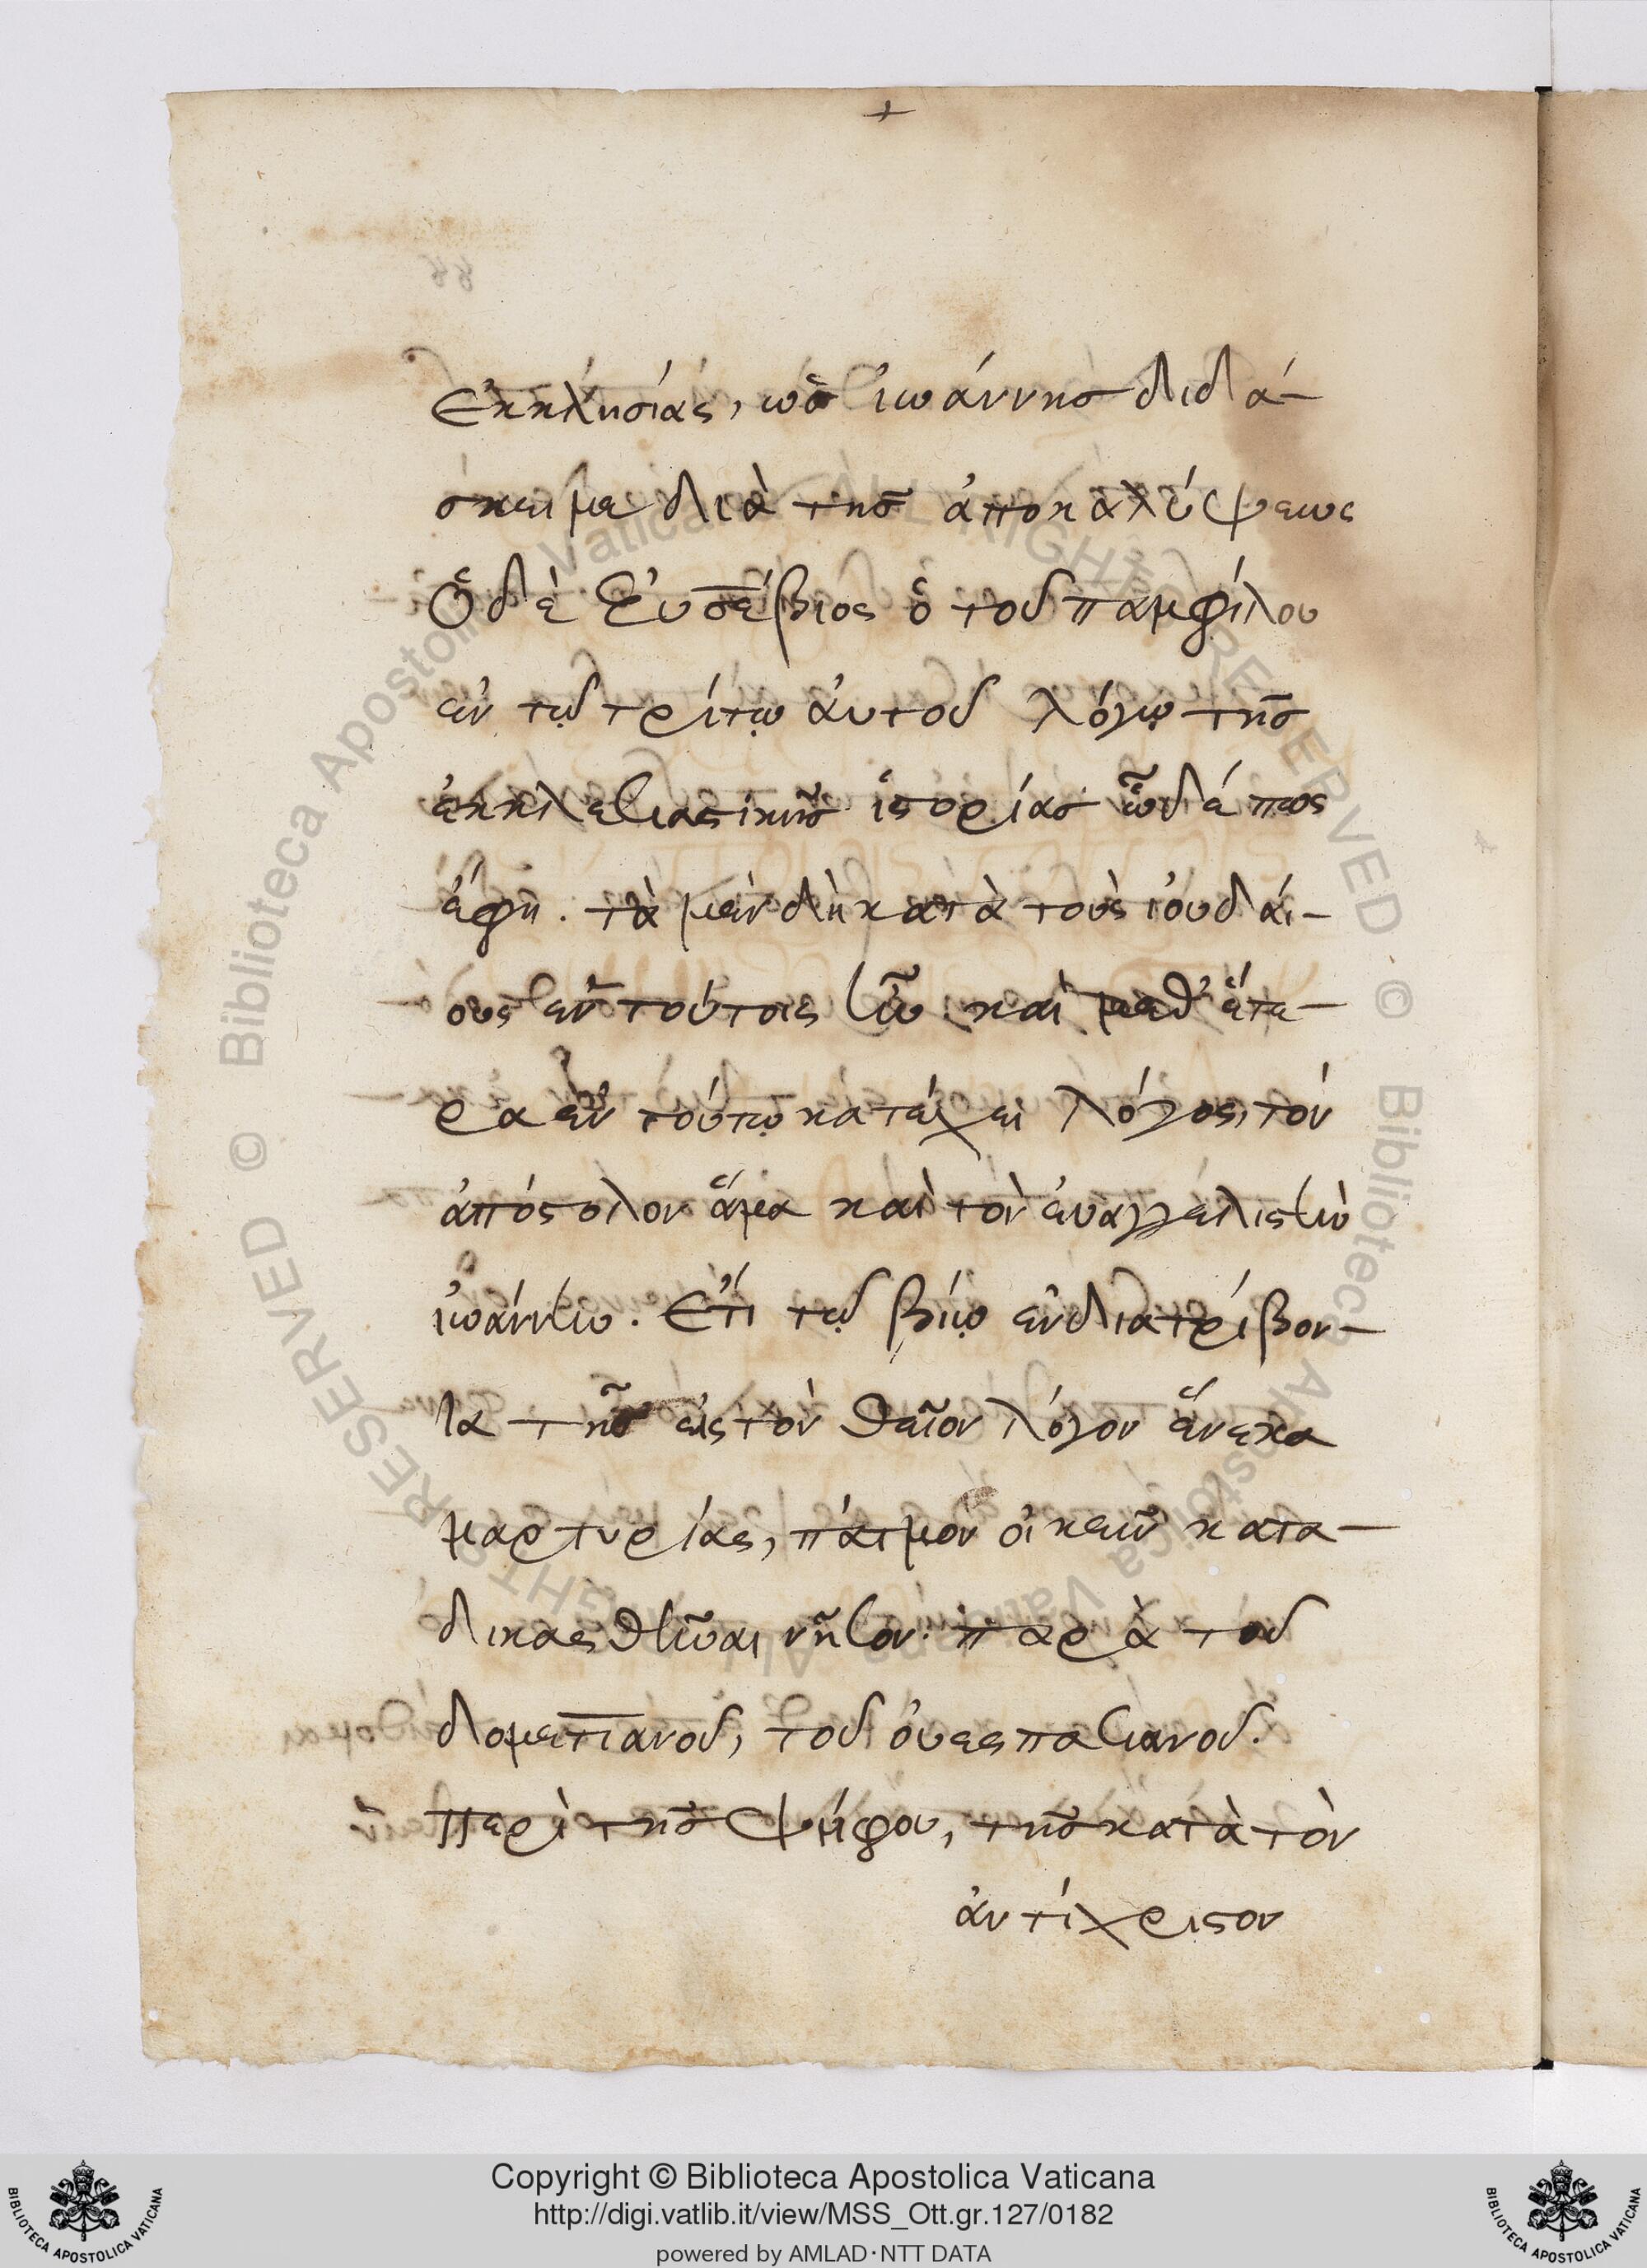 +
ἐκκλησίας, ὡς ἰωάννης διδά-
σκει με διὰ τῆς ἀποκαλύψεως
Ὁ δὲ Ἐυσέβιος ὁ τοῦ παμφίλου
ἐν τῷ τρίτῳ ἀυτοῦ λόγῳ τῆς
ἐκκλεσιαστικῆς ἱστορίας ὧδέ πως
ἔφη. τὰ μὲν δὴ κατὰ τοὺς ἰουδάι-
ους ἐν τούτοις ἦν καὶ μεθ' ἕτε-
ρα ἐν τούτῳ κατέχει λόγος, τόν
ἀπόστολον ἅμα καὶ τὸν ἐυαγγελιστὴν
ἰωάννην. Ἔτι τῷ βίῳ ἐνδιατρίβον-
τα τῆς εἰς τὸν θεῖον λόγον ἕνεκα
μαρτυρίας, πάτμον οἰκεῖν κατα-
δικασθῆναι νῆσον. παρὰ τοῦ
δομετιανοῦ, τοῦ ὀυεσπασιανοῦ.
Περὶ τῆς ψήφου, τῆς κατὰ τὸν
ἀντίχριστον
© Biblioteca Apostolica Vaticana ALL RIGHTS RESERVED © Biblioteca Apostolica Vaticana ALL RIGHTS RESERVED
BIBLIOTECA APOSTOLICA VATICANA
Copyright © Biblioteca Apostolica Vaticana
http://digi.vatlib.it/view/MSS_Ott.gr.127/0182
powered by AMLAD·NTT DATA
BIBLIOTECA APOSTOLICA VATICANA